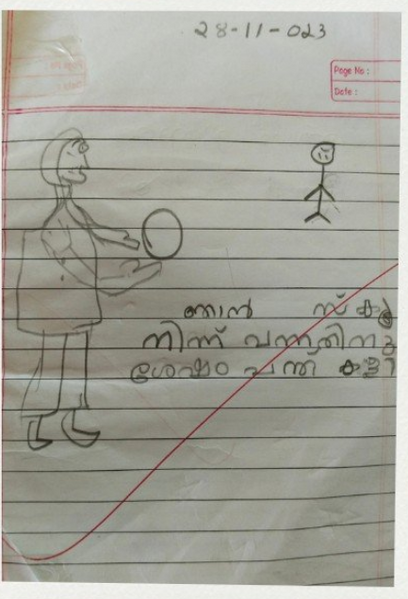 28-11-023
Page No :
Date :
ഞാൻ സ്കൂ
നിന്ന് വന്നതിനു
ശേഷം പന്ത് കളി